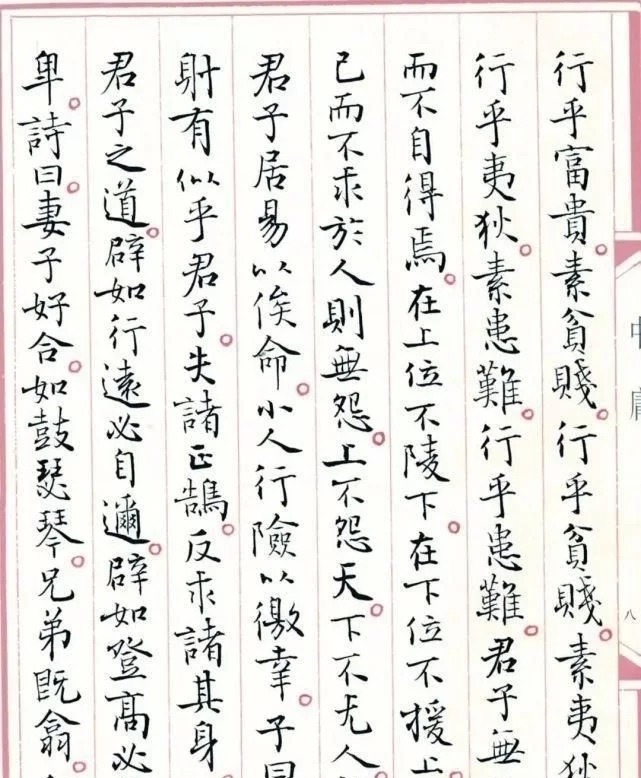 中庸
八
行乎富貴。素貧賤。行乎貧賤。素夷狄
行乎夷狄。素患難。行乎患難。君子無
而不自得焉。在上位不陵下。在下位不援上
己而不求於人則無怨。上不怨天。下不尤人
君子居易以俟命。小人行險以徼幸。子曰
射有似乎君子。失諸正鵠。反求諸其身。
君子之道。辟如行遠必自邇。辟如登高必
卑。詩曰。妻子好合。如鼓瑟琴。兄弟既翕。